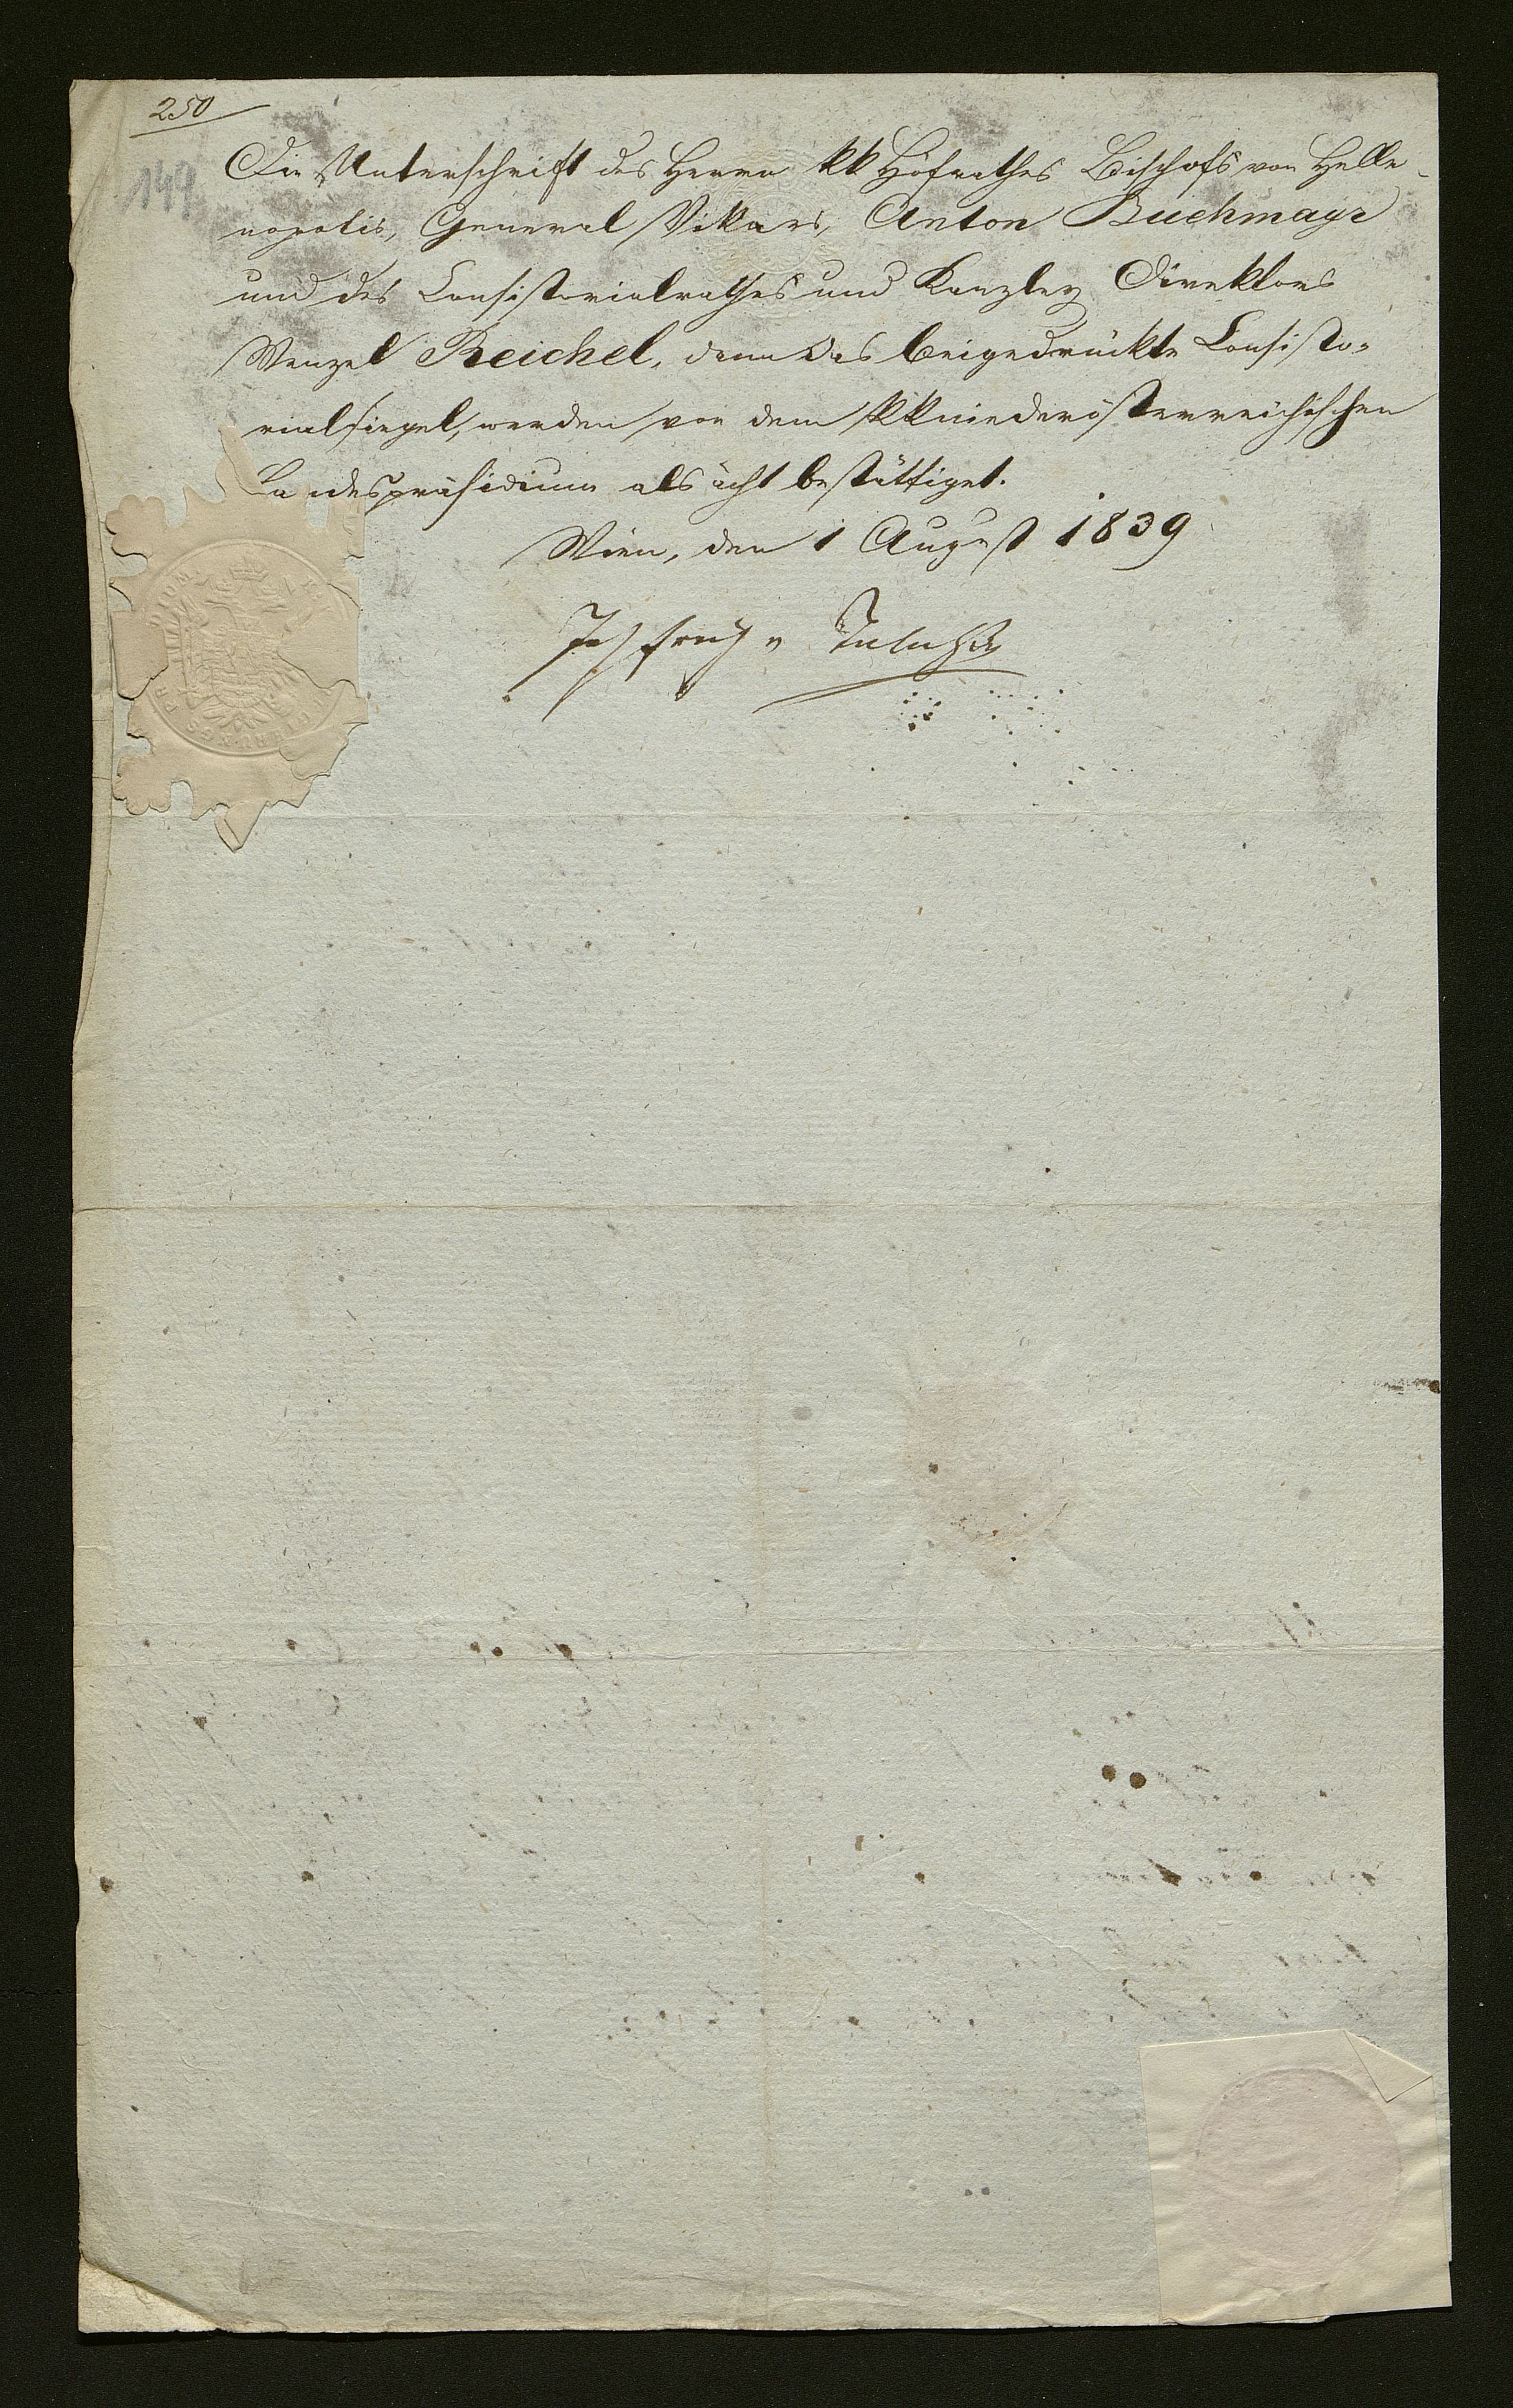 250
149
Die Unterschrift des Herrn kk Hofrathes Bischofs von Helle-
nopolis, General Vikars, Anton Buchmayr
und des Consistorialrathes und Kanzley Direktors
Wenzel Reichel, dann das beigedrückte Consisto-
rialsiegel, werden von dem kk niederösterreichischen
Landespräsidium als ächt bestättiget.
Wien, den 1 August 1839